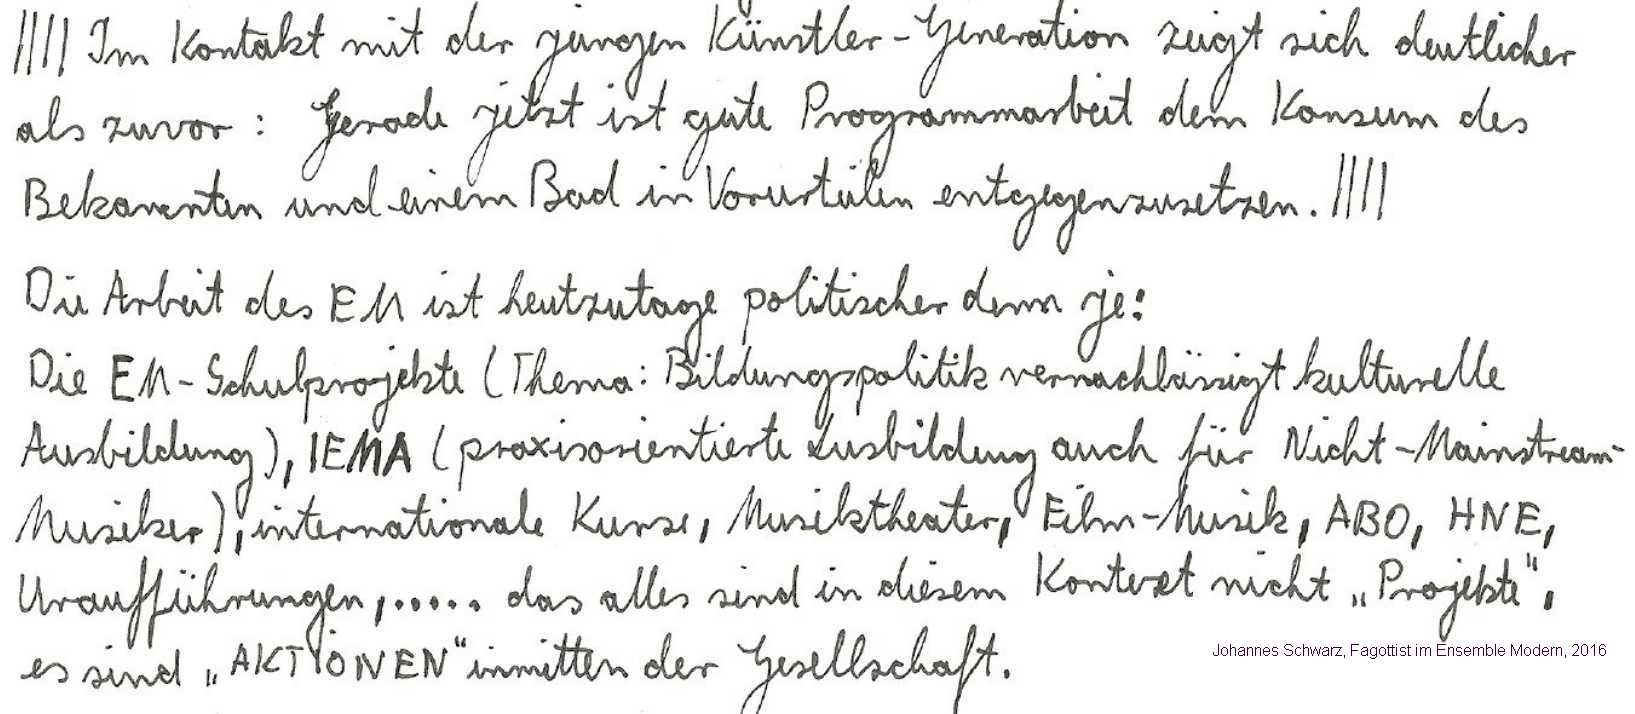 |||| Im Kontakt mit der jungen Künstler-Generation zeigt sich deutlicher
als zuvor: Gerade jetzt ist gute Programmarbeit dem Konsum des
Bekannten und einem Bad in Vorurteilen entgegenzusetzen. ||||
Die Arbeit des EM ist heutzutage politischer denn je:
Die EM-Schulprojekte (Thema: Bildungspolitik vernachlässigt kulturelle
Ausbildung), IEMA (praxisorientierte Ausbildung auch für Nicht-Mainstream-
Musiker), internationale Kurse, Musiktheater, Film-Musik, ABO, HNE,
Uraufführungen,..... das alles sind in diesem Kontext nicht „Projekte",
es sind „AKTIONEN" inmitten der Gesellschaft.
Johannes Schwarz, Fagottist im Ensemble Modern, 2016